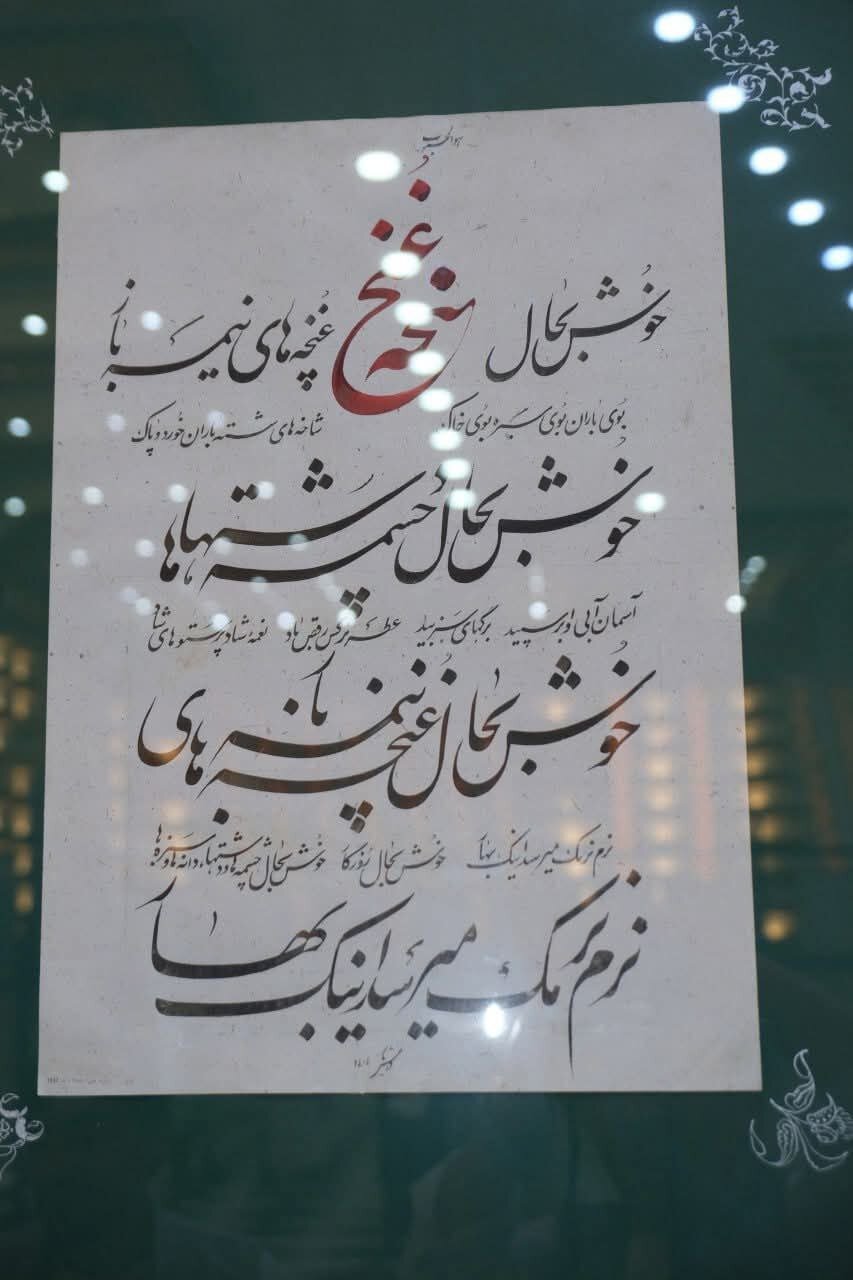 خوش بحال غنچه غنچه های نیمه باز
بوی باران بوی سبزه بوی خاک شاخه های شسته باران خورده پاک
خوش بحال چشمه ها و دشتها
آسمان آبی و ابر سپید برگهای سبز بید عطر نرگس رقص باد نغمه شاد پرستوهای شاد
خوش بحال غنچه های نیمه باز
نرم نرمک میرسد اینک بهار خوش بحال روزگار خوش بحال چشمه ها و دشتها دانه ها و سبزه ها
نرم نرمک میرسد اینک بهار